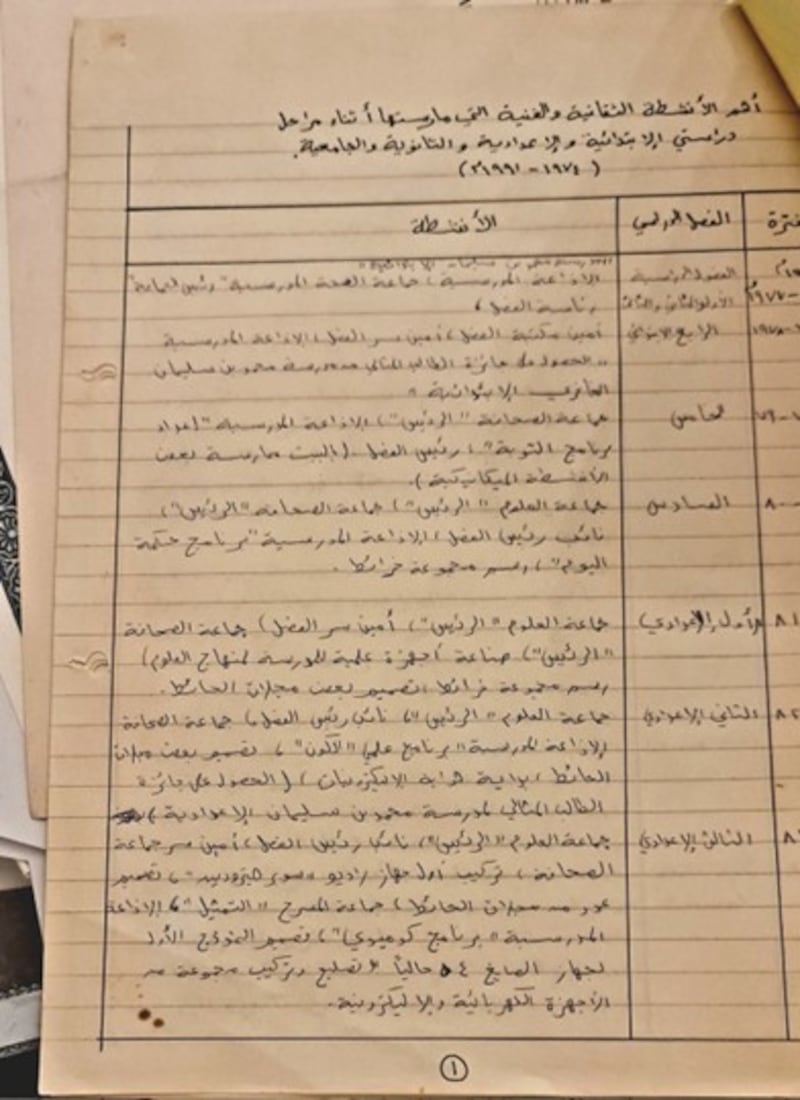 أهم الأنشطة الثقافية والفنية التي مارستها أثناء مراحل
دراستي الابتدائية والإعدادية والثانوية والجامعية.
(١٩٧٤ - ١٩٩١م)
الفصل الدراسي
الأنشطة
الفصول الدراسية
الإذاعة المدرسية، جماعة الصحة المدرسية "رئيس الجماعة"
الأول والثاني والثالث
رئاسة الفصل،
الرابع الابتدائي
أمين مكتبة الفصل، أمين سر الفصل، الإذاعة المدرسية
"الحصول على جائزة الطالب المثالي من مدرسة محمد بن سليمان
الابتدائية"
خامس
جماعة الصحافة "الرئيس"، الإذاعة المدرسية "إعداد
برنامج التوبة"، رئيس الفصل. (البيت ممارسة بعض
الأنشطة الميكانيكية).
السادس
جماعة العلوم "الرئيس"، جماعة الصحافة "الرئيس"،
نائب رئيس الفصل، الإذاعة المدرسية "برنامج حكمة
اليوم"، رسم مجموعة خرائط.
الأول الإعدادي
جماعة العلوم "الرئيس"، أمين سر الفصل، جماعة الصحافة
"الرئيس"، صناعة أجهزة علمية للمدرسة لمنهاج العلوم،
رسم مجموعة خرائط، تصميم بعض مجلات الحائط.
الثاني الإعدادي
جماعة العلوم "الرئيس"، نائب رئيس الفصل، جماعة الصحافة
الإذاعة المدرسية "برنامج علمي "الكون"، تصميم بعض مجلات
الحائط، بداية هواية الإلكترونيات، (الحصول على جائزة
الطالب المثالي لمدرسة محمد بن سليمان الإعدادية)
الثالث الإعدادي
جماعة العلوم "الرئيس"، نائب رئيس الفصل، أمين سر جماعة
الصحافة، تركيب أول جهاز راديو "سوبر هيترودين"، تصميم
عدد من مجلات الحائط، جماعة المسرح "التمثيل"، الإذاعة
المدرسية "برنامج كوميدي"، تصميم النموذج الأول
لجهاز تصليح وتركيب مجموعة من
الأجهزة الكهربائية والإليكترونية.
١